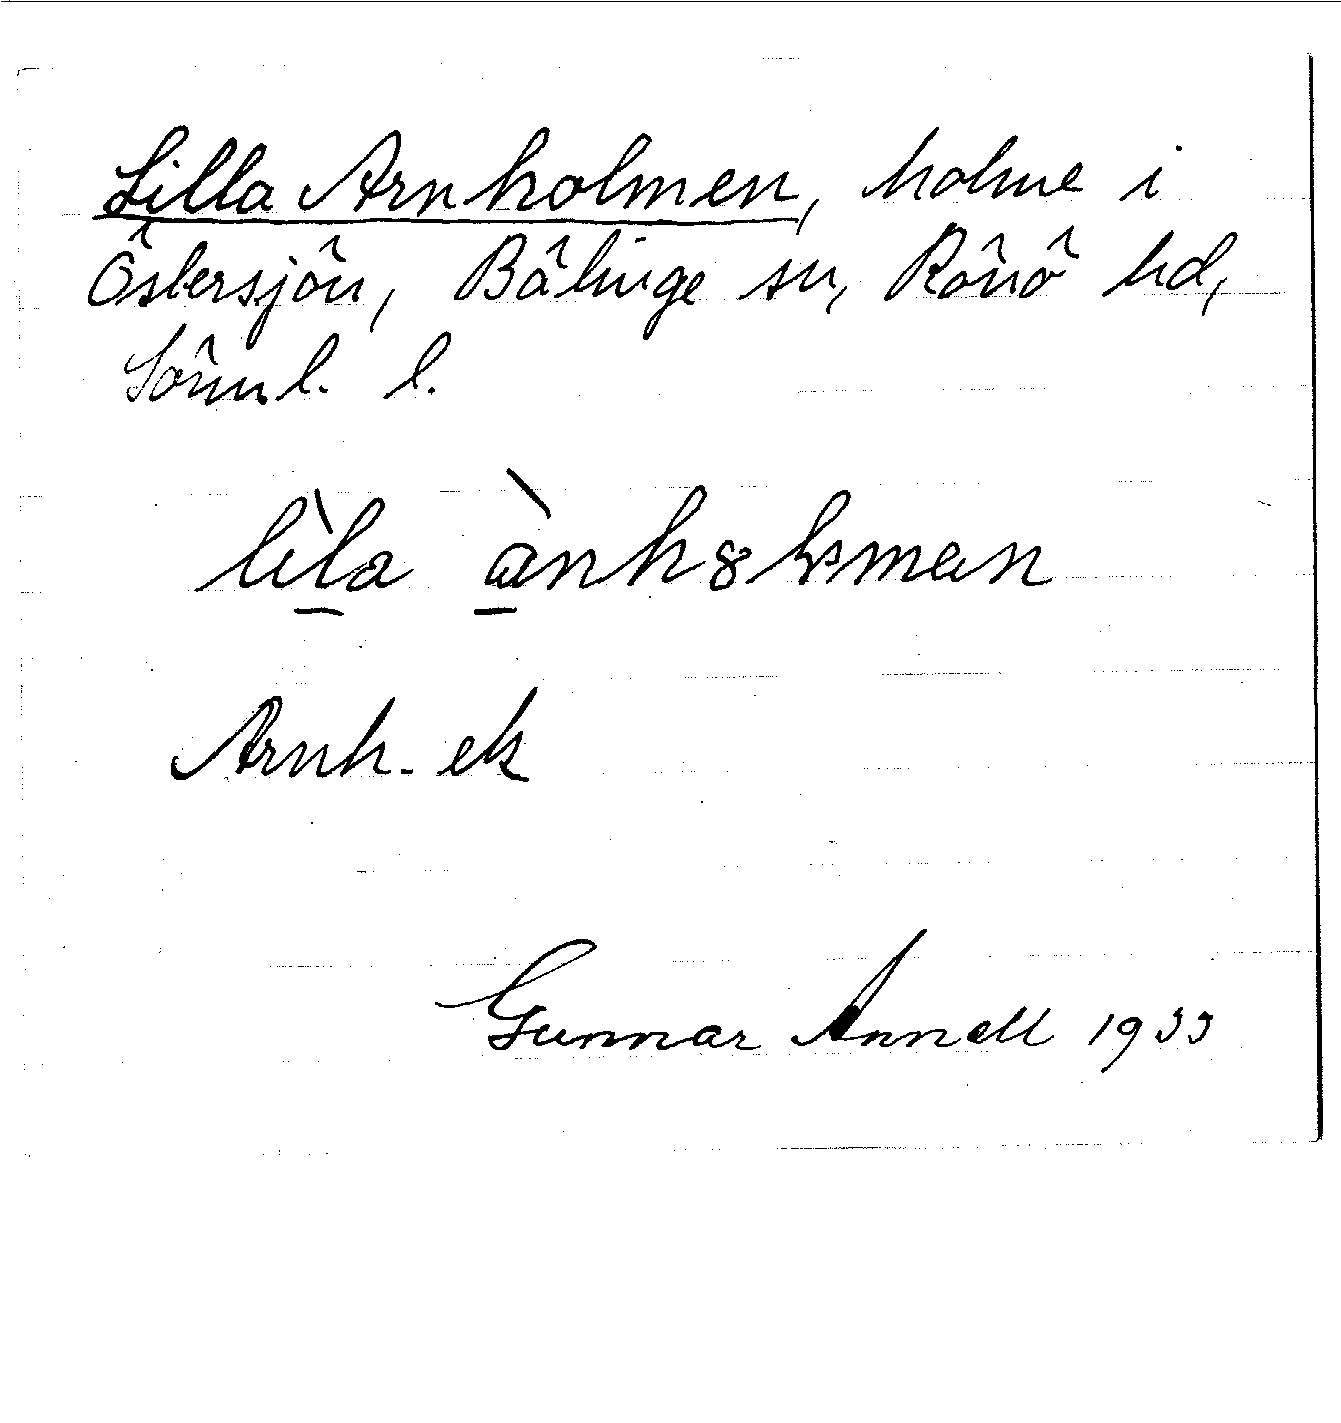 Lilla Arnholmen, holme i
Östersjön, Bälinge sn, Rönö hd,
Sörml. l.
Arnh. ek
Gunnar Annell 1933